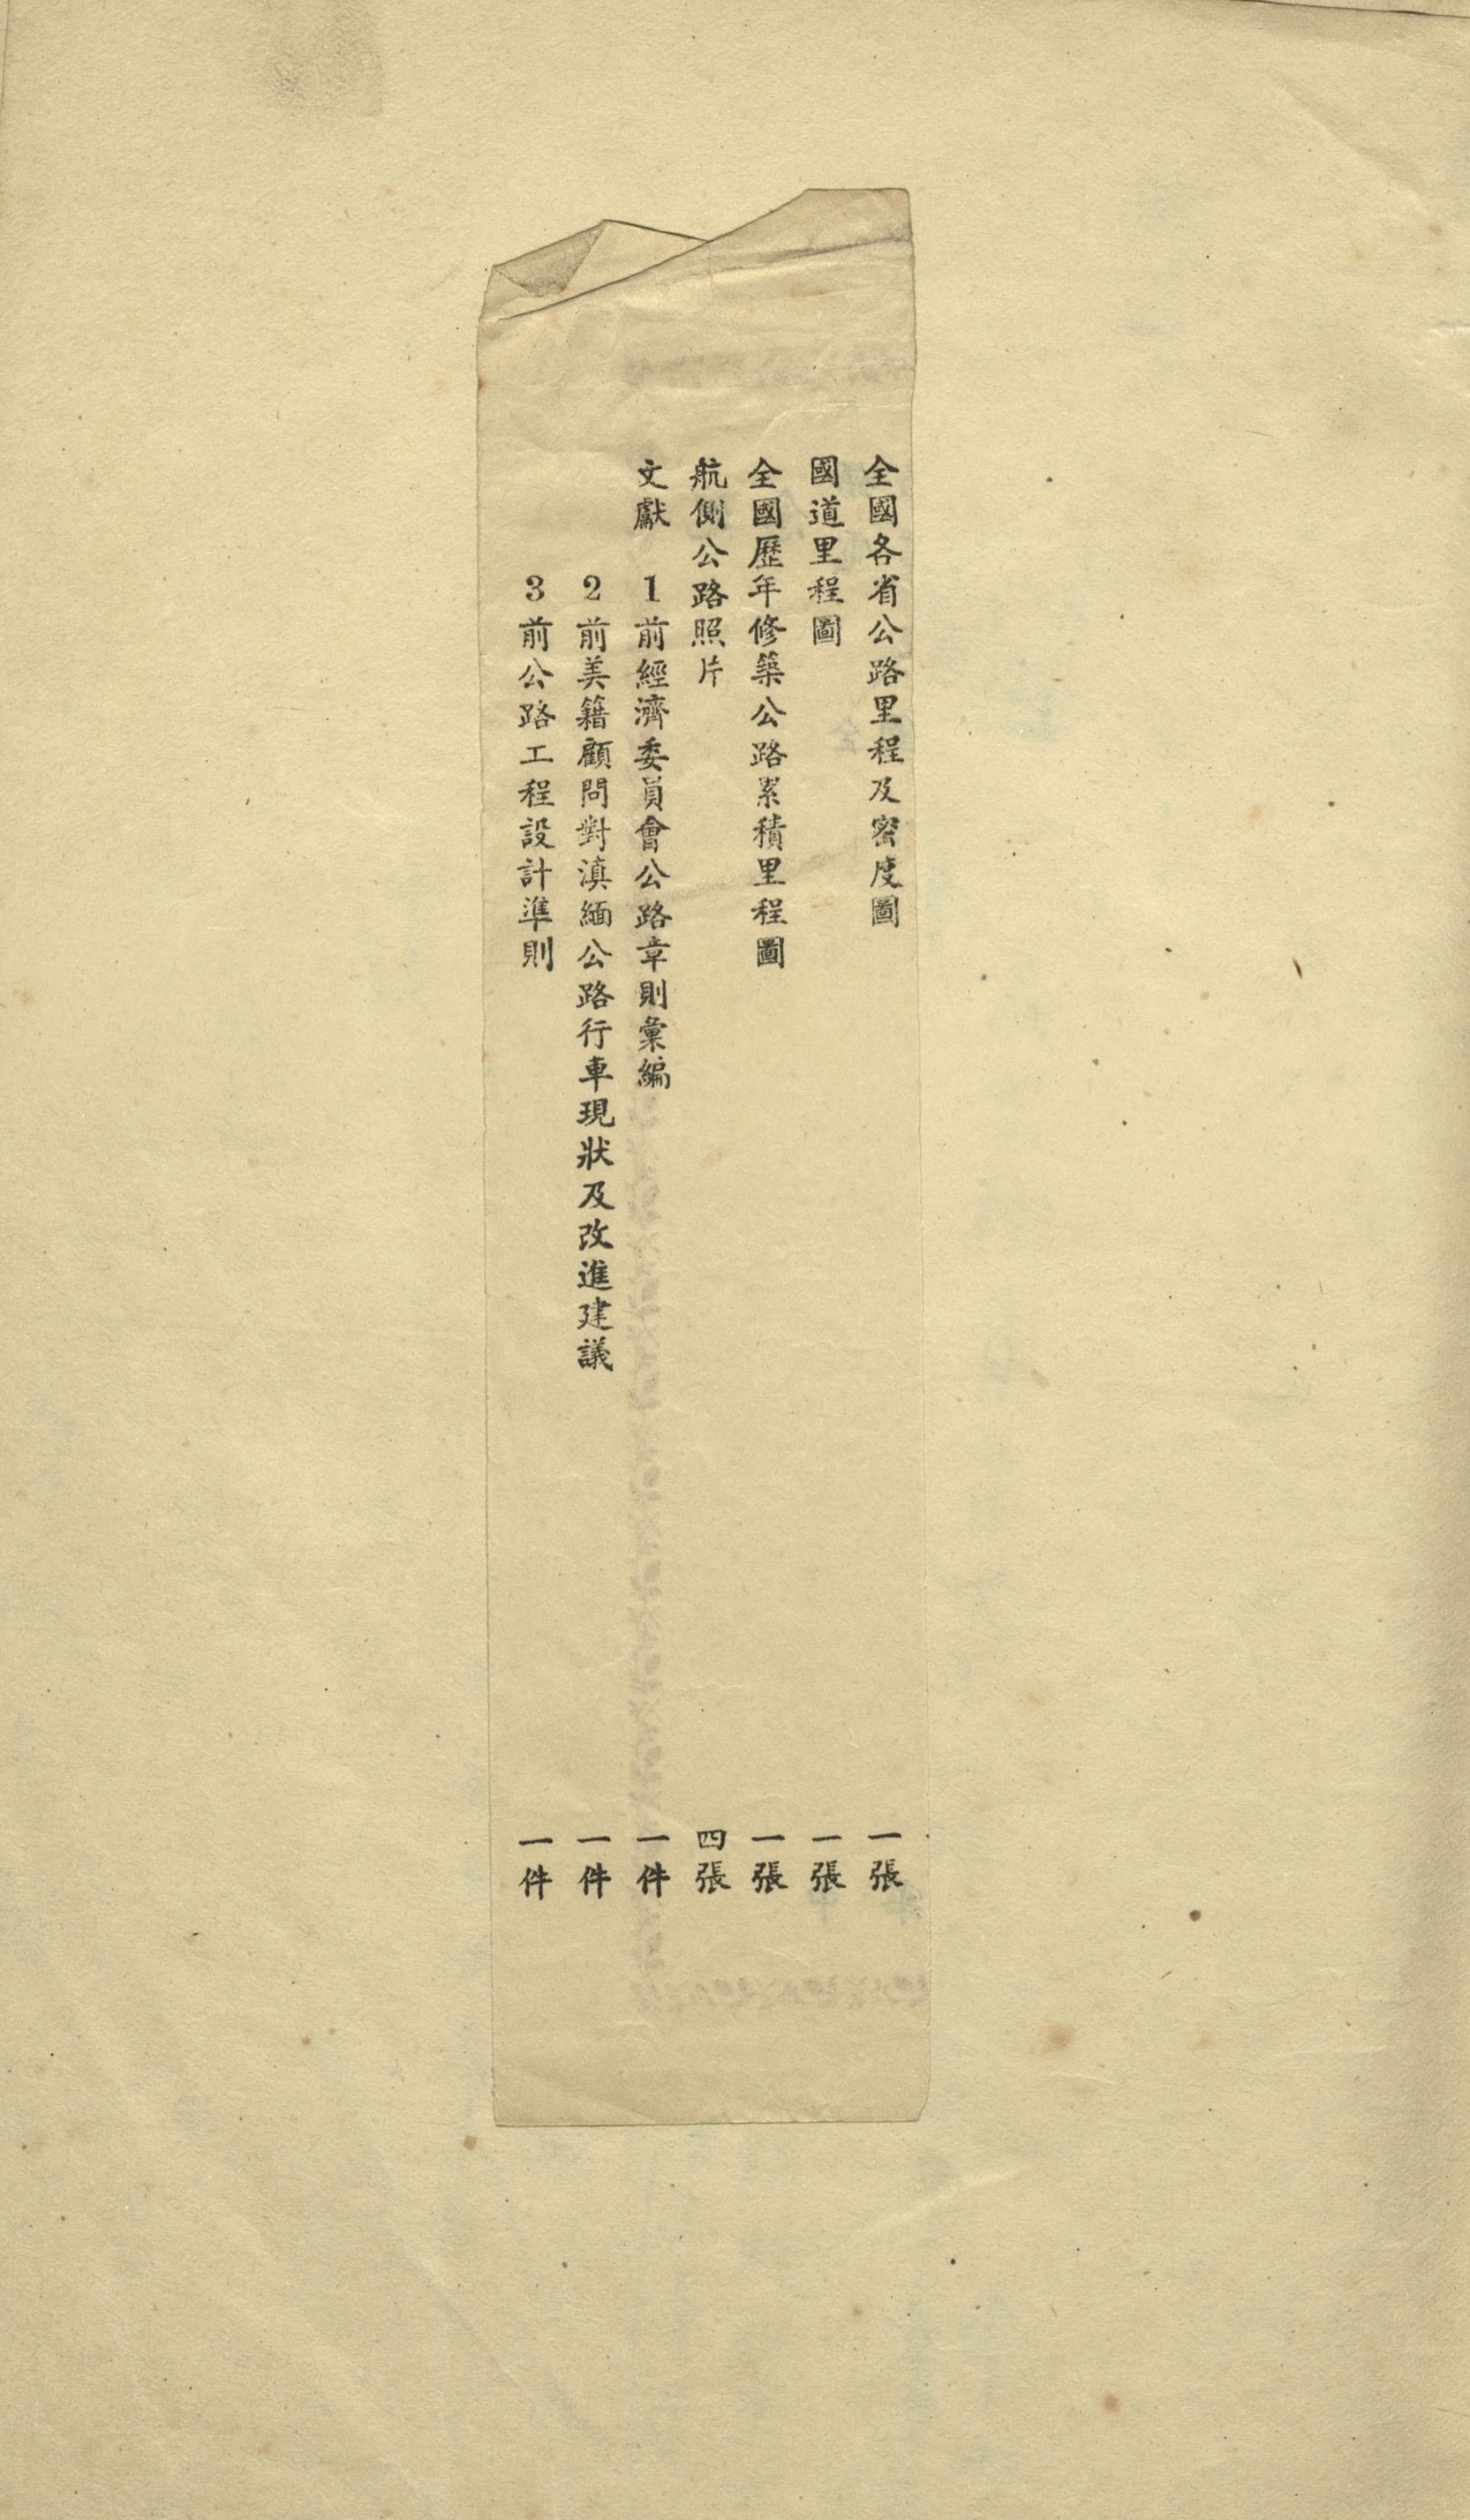 全國各省公路里程及密度圖 一張
國道里程圖 一張
全國歷年修築公路累積里程圖 一張
航側公路照片 四張
文獻 1前經濟委員會公路章則彙編 一件
2前美籍顧問對滇緬公路行車現狀及改進建議 一件
3前公路工程設計準則 一件